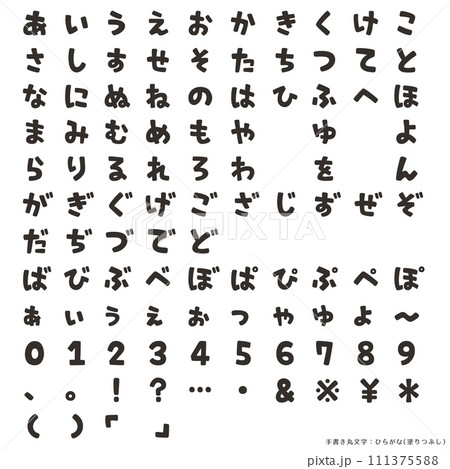 あ い う え お か き く け こ
さ し す せ そ た ち つ て と
な に ぬ ね の は ひ ふ へ ほ
ま み む め も や ゆ よ
ら り る れ ろ わ を ん
が ぎ ぐ げ ご ざ じ ず ぜ ぞ
だ ぢ づ で ど
ば び ぶ べ ぼ ぱ ぴ ぷ ぺ ぽ
ぁ ぃ ぅ ぇ ぉ っ ゃ ゅ ょ 〜
0 1 2 3 4 5 6 7 8 9
、 。 ! ? … ・ & ※ ¥ *
( ) 「 」
手書き丸文字:ひらがな(塗りつぶし)
PIXTA
pixta.jp - 111375588